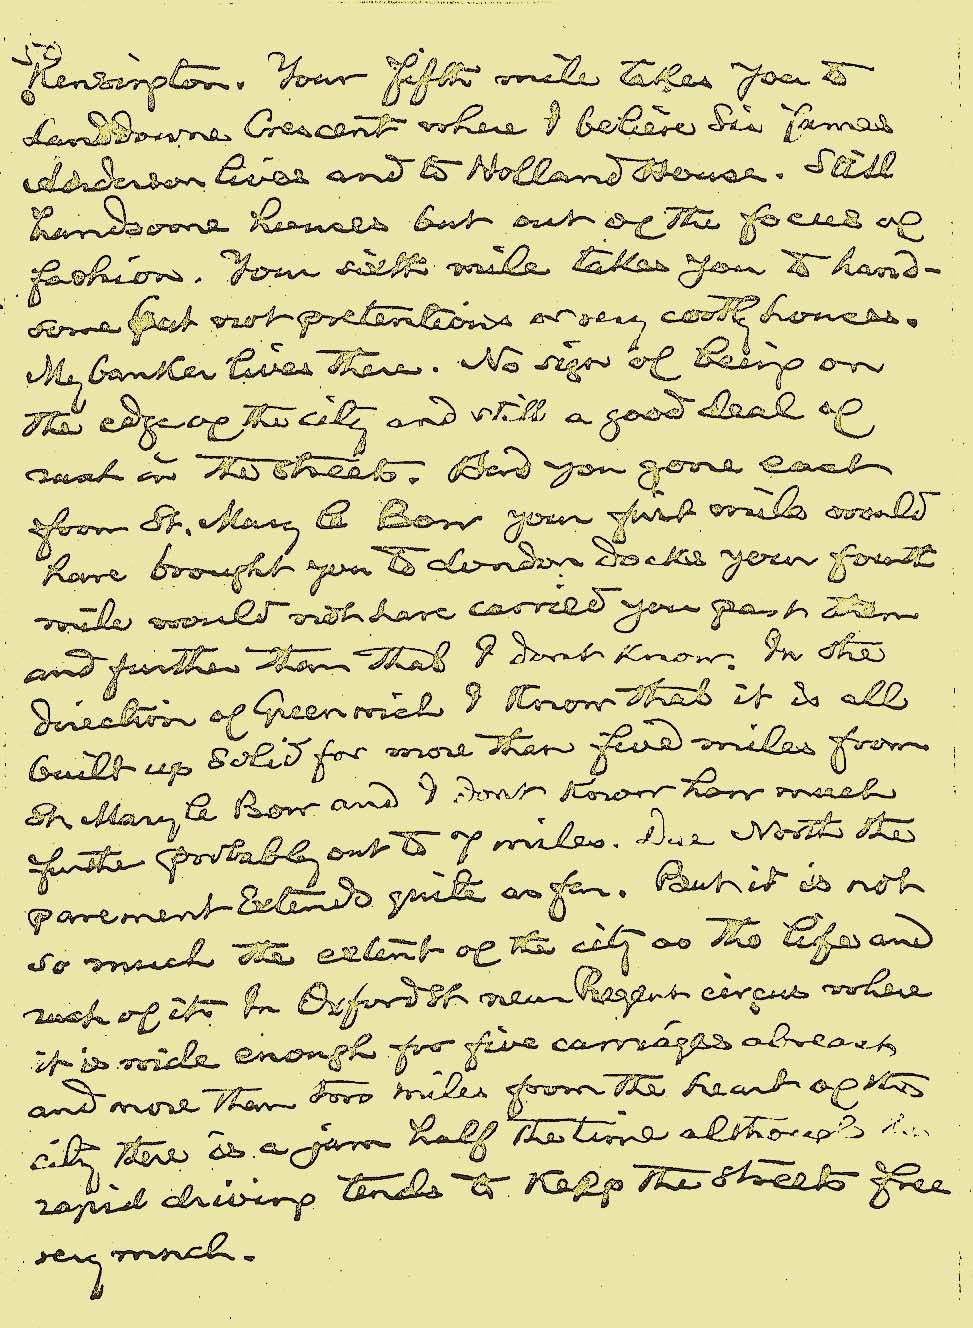 50
Kensington. Your fifth mile takes you to
Landsdowne Crescent where I believe Sir James
Anderson lives and to Holland House. Still
handsome houses but out of the focus of
fashion. Your sixth mile takes you to hand-
some but not pretentious or very costly houses.
My banker lives there. No sign of being on
the edge of the city and still a good deal of
rush in the streets. Had you gone east
from St. Mary le Bow your first mile would
have brought you to London docks your fourth
mile would not have carried you past
and further than that I dont know. In the
direction of Greenwich I know that it is all
built up solid for more than five miles from
St Mary le Bow and I dont know how much
further probably out to 7 miles. Due North the
pavement Extends quite as far. But it is not
so much the extent of the city as the life and
rush of it. In Oxford St near Regent circus where
it is wide enough for five carriages abreast
and more than two miles from the heart of the
city there is a jam half the time although the
rapid driving tends to keep the streets free
very much.